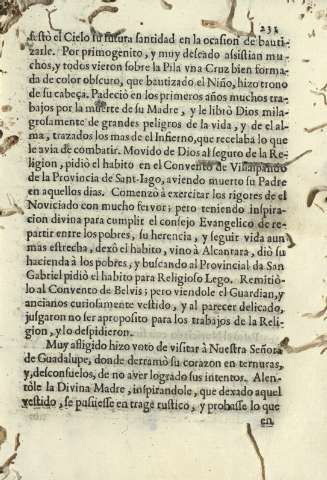 232
festò el Cielo su futura santidad en la ocasion de bauti-
zarle. Por primogenito, y muy deseado assistian mu-
chos, y todos vieron sobre la Pila vna Cruz bien forma
da de color obscuro, que bautizado el Niño, hizo trono
de su cabeça. Padeciò en los primeros años muchos tra-
bajos por la muerte de su Madre, y le librò Dios mila-
grosamente de grandes peligros de la vida, y de el al-
ma, trazados los mas de el Infierno, que recelaba lo que
le avia de combatir. Movido de Dios al seguro de la Re-
ligion, pidiò el habito en el Convento de Villalpando
de la Provincia de Sant-Iago, aviendo muerto su Padre
en aquellos dias. Comenzò à exercitar los rigores de el
Noviciado con mucho fervor; pero teniendo inspira-
cion divina para cumplir el consejo Evangelico de re-
partir entre los pobres, su herencia, y seguir vida aun
mas estrecha, dexò el habito, vino à Alcantara, diò su
hacienda à los pobres, y buscando al Provincial da San
Gabriel pidiò el habito para Religioso Lego. Remitiò-
lo al Convento de Belvis; pero viendole el Guardian, y
ancianos curiosamente vestido, y al parecer delicado,
jusgaron no ser aproposito para los trabajos de la Reli-
gion, y lo despidieron.
Muy afligido hizo voto de visitar à Nuestra Señora
de Guadalupe, donde derramò su corazon en ternuras,
y, desconsuelos, de no aver logrado sus intentos. Alen-
tòle la Divina Madre, inspirandole, que dexado aquel
vestido, se pusiesse en trage rustico, y probasse lo que
en